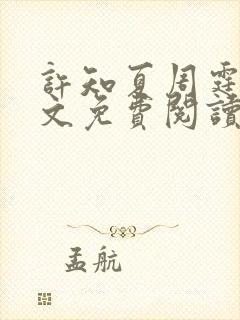 許知夏周霆
文免費閱讀
孟航